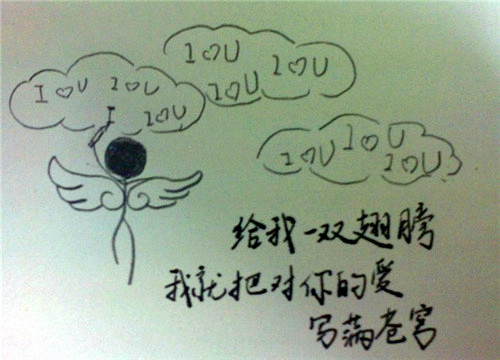 I♡U I♡U
I I♡U
I♡U I♡U
I♡U
I♡U I♡U I♡U
给我一双翅膀
我就把对你的爱
写满苍穹